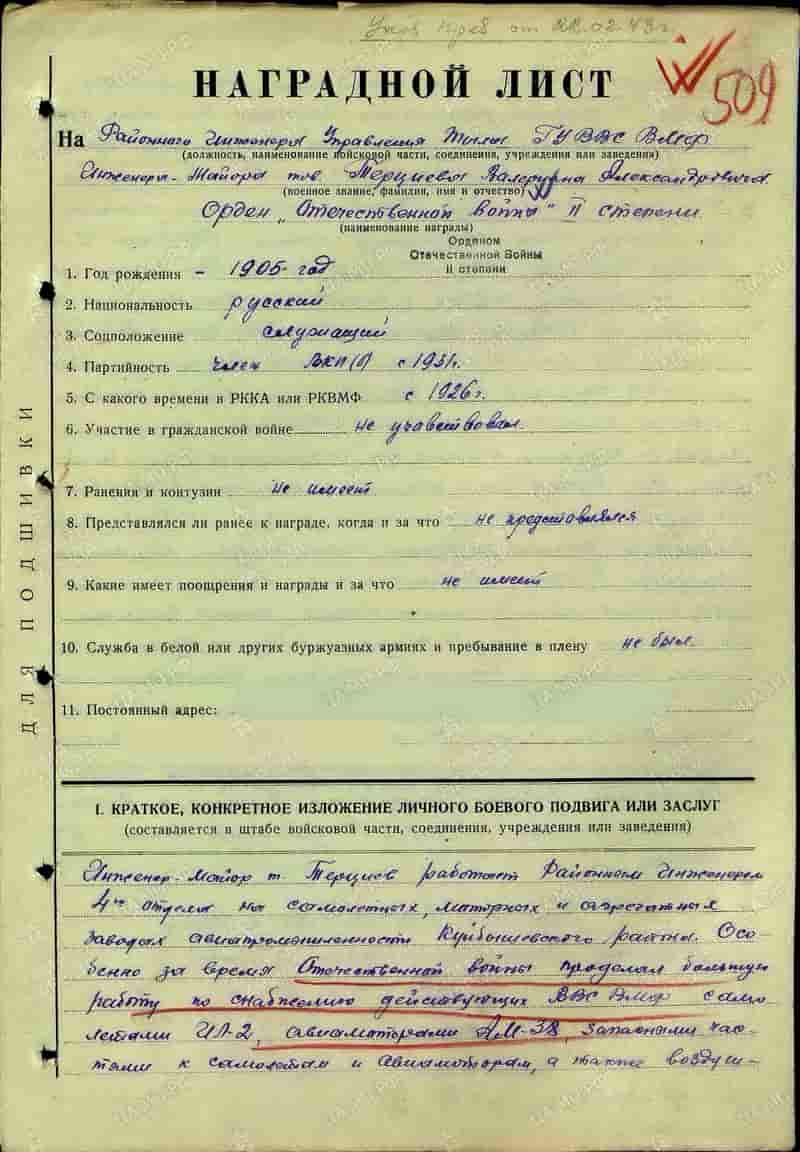 Указ През от 22.02.43 г.
НАГРАДНОЙ ЛИСТ
509
На Районного Инженера Управления Тыла ГУВВС ВМФ
(должность, наименование войсковой части, соединения, учреждения или заведения)
Инженера-Майора тов Терциева Валериана Александровича
(военное звание, фамилия, имя и отчество)
Орден „Отечественной войны" II степени
(наименование награды)
Орденом
Отечественной Войны
II степени
1. Год рождения – 1905 год
2. Национальность русский
3. Соцположение служащий
4. Партийность член ВКП(б) с 1931г.
5. С какого времени в РККА или РКВМФ с 1926 г.
6. Участие в гражданской войне не учавствовал
7. Ранения и контузии не имеет
8. Представлялся ли ранее к награде, когда и за что не представлялся
9. Какие имеет поощрения и награды и за что не имеет
10. Служба в белой или других буржуазных армиях и пребывание в плену не был
11. Постоянный адрес:
ДЛЯ ПОДШИВКИ
I. КРАТКОЕ, КОНКРЕТНОЕ ИЗЛОЖЕНИЕ ЛИЧНОГО БОЕВОГО ПОДВИГА ИЛИ ЗАСЛУГ
(составляется в штабе войсковой части, соединения, учреждения или заведения)
Инженер-Майор т. Терциев работает Районным Инженером
4го отдела на самолетных, моторных и агрегатных
заводах авиапромышленности Куйбышевского района. Осо
бенно за время Отечественной войны проделал большую
работу по снабжению действующих ВВС ВМФ само
летами ИЛ-2, авиамоторами АМ-38, запасными час-
тями к самолетам и авиамоторам, а также воздуш-